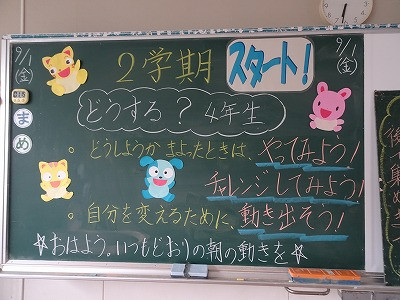 9/1
(金)
2学期 スタート!
9/1
(金)
どうする? 4年生
まめ
。どうしようかまよったときは、やってみよう!
チャレンジしてみよう!
。自分を変えるために、動き出そう!
☆おはよう。いつもどおりの朝の動きを☆